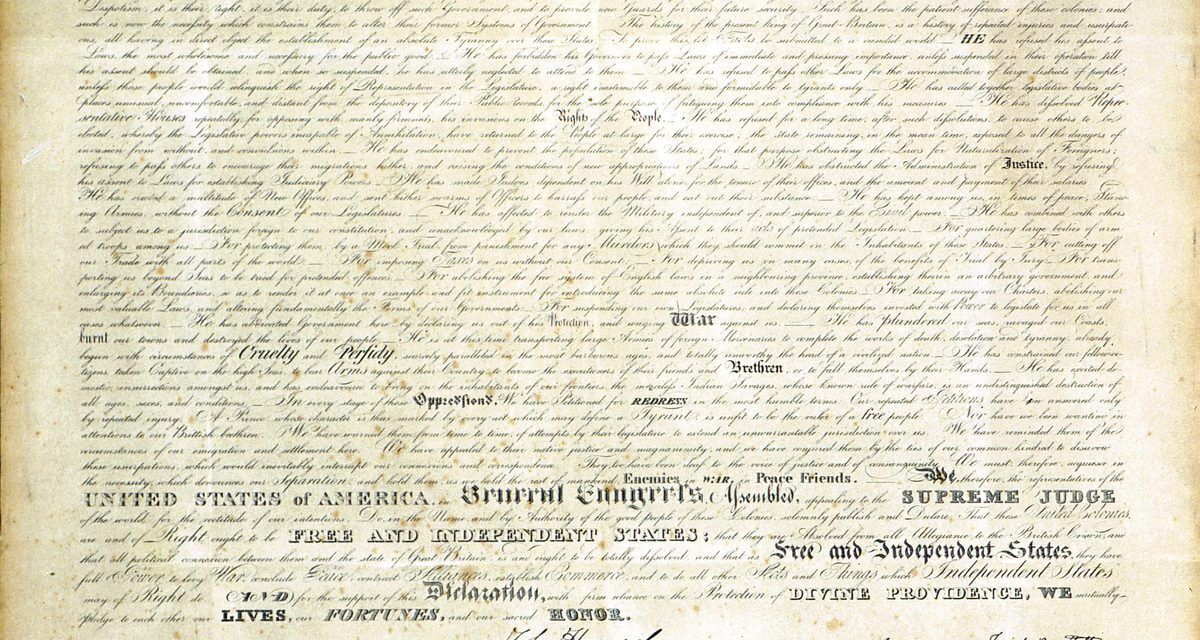 Despotism, it is their right, it is their duty, to throw off such Government, and to provide new Guards for their future security. Such has been the patient sufferance of these colonies; and
such is now the necessity which constrains them to alter their former Systems of Government. The history of the present king of Great Britain, is a history of repeated injuries and usurpati-
ons, all having in direct object the establishment of an absolute Tyranny over these States. To prove this let Facts be submitted to a candid world — HE has refused his assent to
Laws, the most wholesome and necessary for the public good. — He has forbidden his Governors to pass Laws of immediate and pressing importance, unless suspended in their operation till
his assent should be obtained; and when so suspended, he has utterly neglected to attend to them. — He has refused to pass other Laws for the accommodation of large districts of people,
unless those people would relinquish the right of Representation in the Legislature, a right inestimable to them and formidable to tyrants only. — He has called together legislative bodies at
places unusual, uncomfortable, and distant from the depository of their Public Records, for the sole purpose of fatiguing them into compliance with his measures — He has dissolved Repre-
sentative Houses repeatedly, for opposing with manly firmness, his invasions on the Rights of the People. He has refused for a long time, after such dissolutions, to cause others to be
elected, whereby the Legislative powers incapable of Annihilation, have returned to the People at large for their exercise; the state remaining, in the mean time, exposed to all the dangers of
invasion from without, and convulsions within — He has endeavoured to prevent the population of these States; for that purpose obstructing the Laws for Naturalization of Foreigners;
refusing to pass others to encourage their migrations hither, and raising the conditions of new appropriations of Lands. — He has obstructed the Administration of Justice, by refusing
his assent to Laws for establishing Judiciary Powers — He has made Judges dependent on his Will alone for the tenure of their offices, and the amount and payment of their salaries
He has erected a multitude of New Offices, and sent hither swarms of Officers to harrass our people, and eat out their substance — He has kept among us, in times of peace, Stand-
ing Armies, without the Consent of our Legislatures — He has affected to render the Military independent of, and superior to the Civil power — He has combined with others
to subject us to a jurisdiction foreign to our constitution, and unacknowledged by our laws; giving his Assent to their acts of pretended Legislation. — For quartering large bodies of arm
ed troops among us — For protecting them, by a Mock Trial, from punishment for any Murders which they should commit on the Inhabitants of these States — For cutting off
our Trade with all parts of the world — For imposing Taxes on us without our Consent — For depriving us in many cases, of the benefits of Trial by Jury — For trans-
porting us beyond Seas to be tried for pretended offences — For abolishing the free system of English laws in a neighbouring province, establishing therein an arbitrary government, and
enlarging its Boundaries, so as to render it at once an example and fit instrument for introducing the same absolute rule into these Colonies For taking away our Charters, abolishing our
most valuable Laws, and altering fundamentally the Forms of our Governments For suspending our own Legislatures, and declaring themselves invested with Power to legislate for us in all
cases whatsoever — He has abdicated Government here by declaring us out of his Protection, and waging War against us. — He has plundered our seas, ravaged our Coasts,
burnt our towns and destroyed the lives of our people — He is at this time transporting large Armies of foreign Mercenaries to complete the works of death, desolation and tyranny, already
begun with circumstances of Cruelty and Perfidy, scarcely paralleled in the most barbarous ages, and totally unworthy the head of a civilized nation — He has constrained our fellow-ci-
tizens, taken Captive on the high Seas, to bear Arms against their Country, to become the executioners of their friends and Brethren, or to fall themselves by their Hands. — He has excited do-
mestic insurrections amongst us, and has endeavoured to bring on the inhabitants of our frontiers, the merciless Indian Savages, whose known rule of warfare, is an undistinguished destruction of
all ages, sexes, and conditions. — In every stage of these Oppressions, We have Petitioned for REDRESS in the most humble terms Our repeated Petitions have been answered only
by repeated injury. A Prince, whose character is thus marked by every act which may define a Tyrant is unfit to be the ruler of a free people Nor have we been wanting in
attentions to our British brethren. We have warned them from time to time, of attempts by their legislature to extend an unwarrantable jurisdiction over us. We have reminded them of the
circumstances of our emigration and settlement here. We have appealed to their native justice and magnanimity, and we have conjured them by the ties of our common kindred to disavow
these usurpations, which would inevitably interrupt our connexions and correspondence. They too have been deaf to the voice of justice and of consanguinity We must, therefore, acquiesce in
the necessity, which denounces our Separation, and hold them, as we hold the rest of mankind Enemies in WAR, in Peace Friends. We, therefore, the representatives of the
UNITED STATES of AMERICA, in General Congress, Assembled, appealing to the SUPREME JUDGE
of the world for the rectitude of our intentions, Do, in the Name, and by Authority of the good people of these Colonies, solemnly publish and Declare, That these United Colonies,
are and of Right ought to be FREE AND INDEPENDENT STATES; that they are Absolved from all Allegiance to the British Crown, and
that all political connexion between them and the state of Great Britain, is and ought to be totally dissolved and that as Free and Independent States, they have
full Power to levy War, conclude Peace, contract Alliances, establish Commerce and to do all other Acts and Things which Independent States
may of Right do. AND for the support of this Declaration, with firm reliance on the Protection of DIVINE PROVIDENCE, WE mutually
pledge to each other our LIVES, our FORTUNES, and our sacred HONOR.